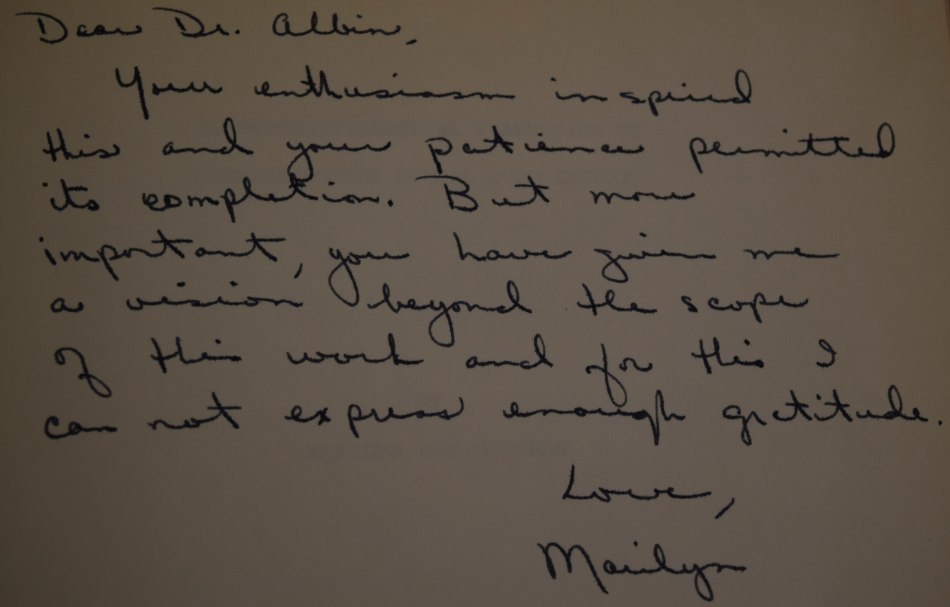 Dear Dr. Albin,
Your enthusiasm inspired
this and your patience permitted
its completion. But more
important, you have given me
a vision beyond the scope
of this work and for this I
can not express enough gratitude.
Love,
Marilyn